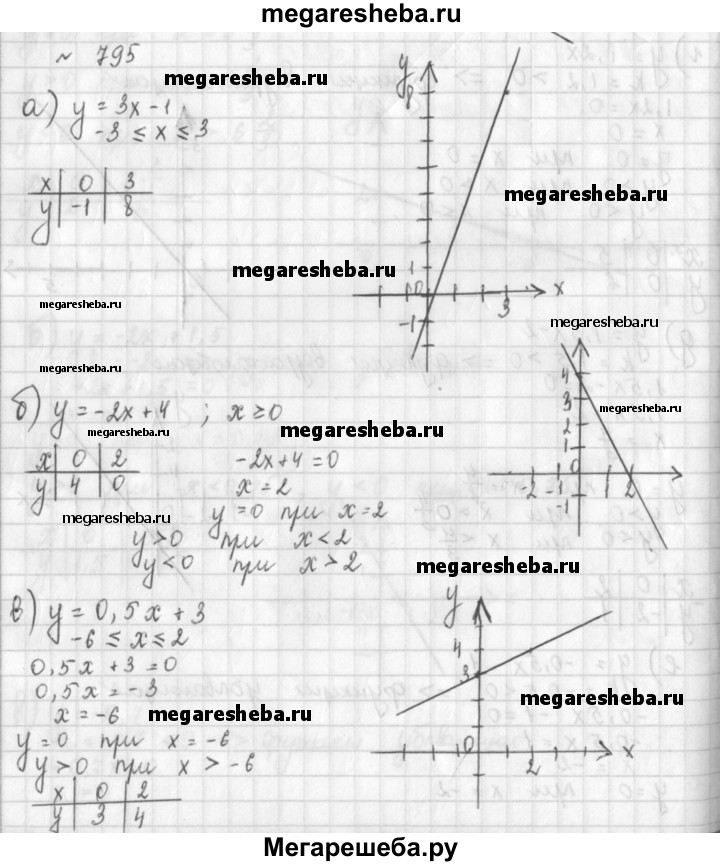 megaresheba.ru
№ 795
megaresheba.ru
а) y = 3x - 1
-3 ≤ x ≤ 3
x 0 3
y -1 8
y
8
1
0
-1
3
x
megaresheba.ru
megaresheba.ru
megaresheba.ru
megaresheba.ru
megaresheba.ru
б) y = -2x + 4 ; x ≥ 0
megaresheba.ru
megaresheba.ru
megaresheba.ru
x 0 2
y 4 0
-2x + 4 = 0
x = 2
y = 0 при x = 2
y > 0 при x < 2
y < 0 при x > 2
4
3
2
1
0
-2 -1 2
-1
megaresheba.ru
megaresheba.ru
в) y = 0,5x + 3
-6 ≤ x ≤ 2
0,5x + 3 = 0
0,5x = -3
x = -6
y = 0 при x = -6
y > 0 при x > -6
x 0 2
y 3 4
y
4
3
0
2
x
megaresheba.ru
megaresheba.ru
Мегарешеба.ру